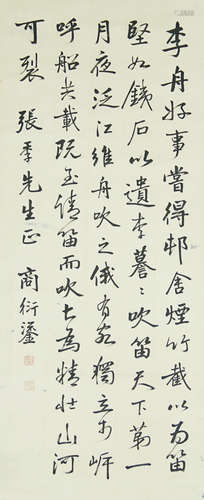 李舟好事嘗得邨舍煙竹截以為笛
堅如鐵石以遺李謩謩吹笛天下第一
月夜泛江維舟吹之俄有客獨立於岸
呼船共載既至請笛而吹甚為精壯山河
可裂 張季先生正 商衍鎏